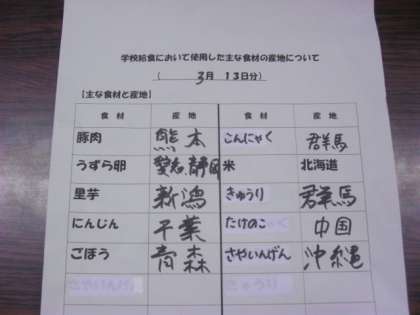 学校給食において使用した主な食材の産地について
( 3月 13日分)
【主な食材と産地】
食材 産地 食材 産地
豚肉 熊本 こんにゃく 群馬
うずら卵 愛知、静岡 米 北海道
里芋 新潟 きゅうり 群馬
にんじん 千葉 たけのこ 中国
ごぼう 青森 さやいんげん 沖縄
さやいんげん きゅうり